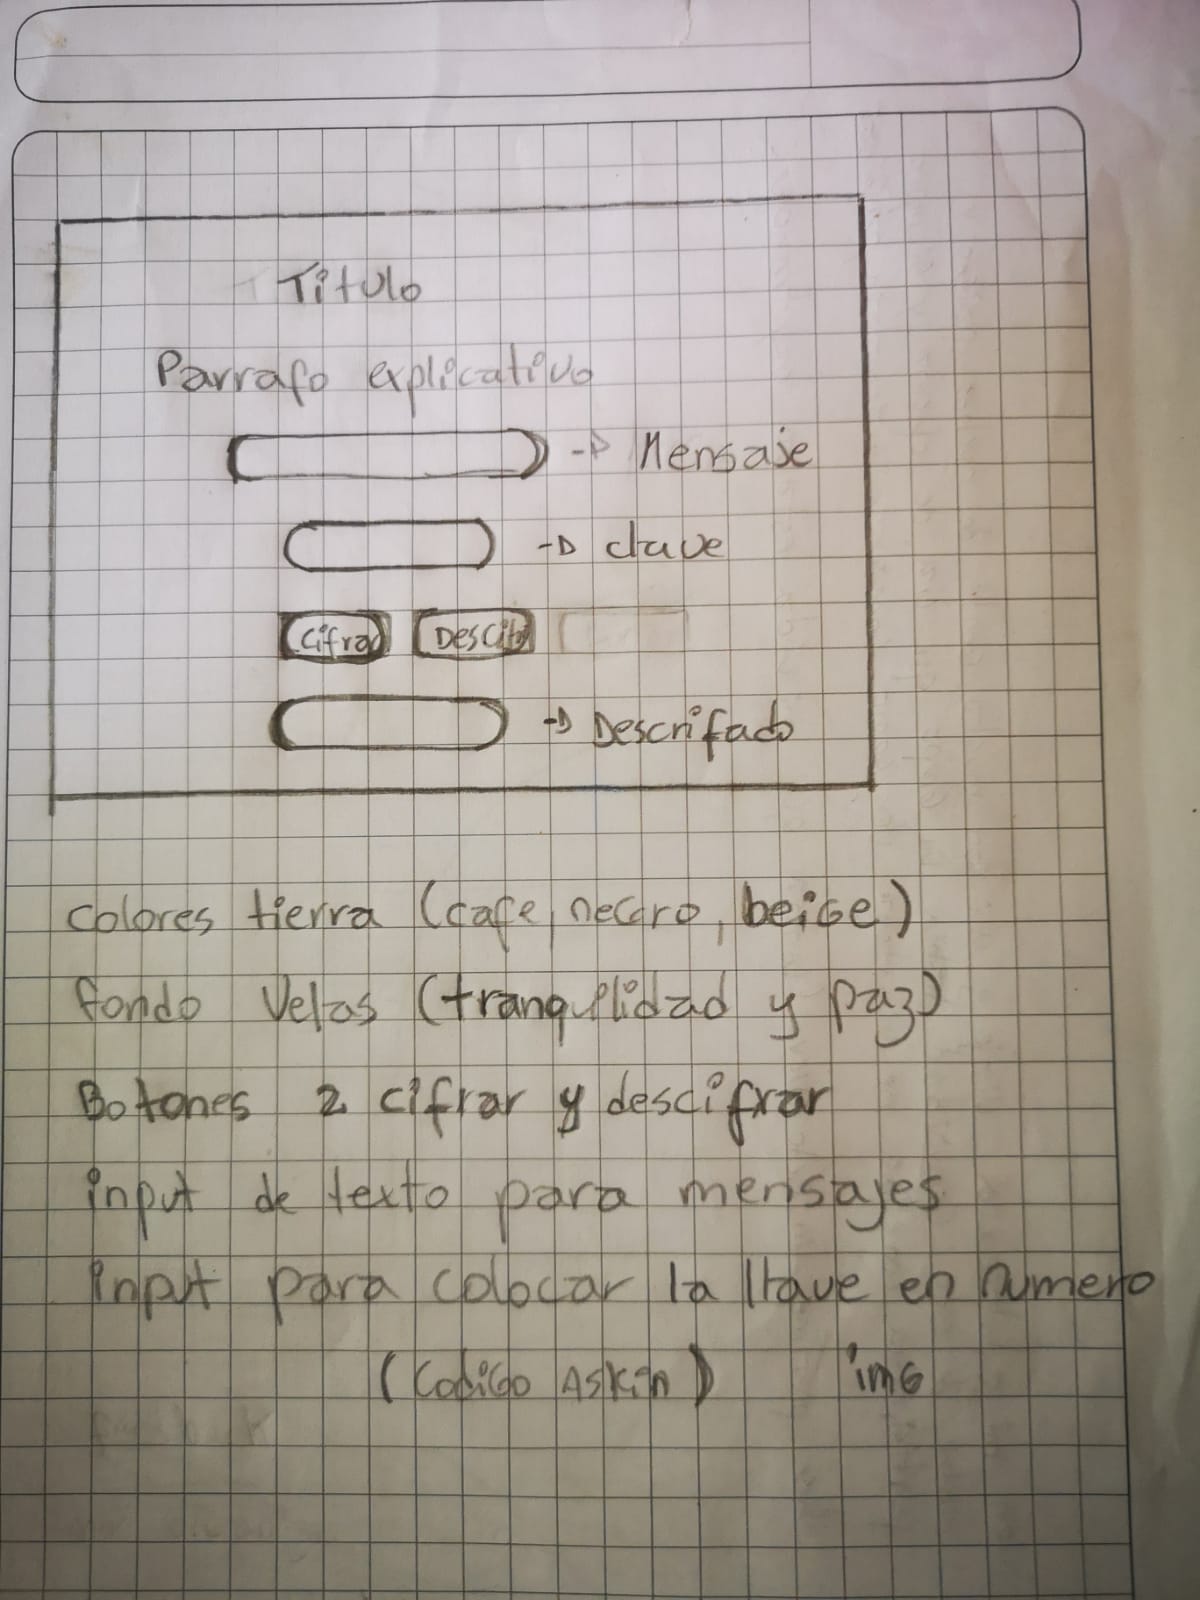 Titulo
Parrafo explicativo
-> Mensaje
-> clave
Cifrad Descif
-> Descrifado
colores tierra (cafe, necro, beige)
fondo Velas (tranquilidad y paz)
Botones 2 cifrar y descifrar
input de texto para mensajes
input para colocar la llave en numero
(Codigo Askin) imG